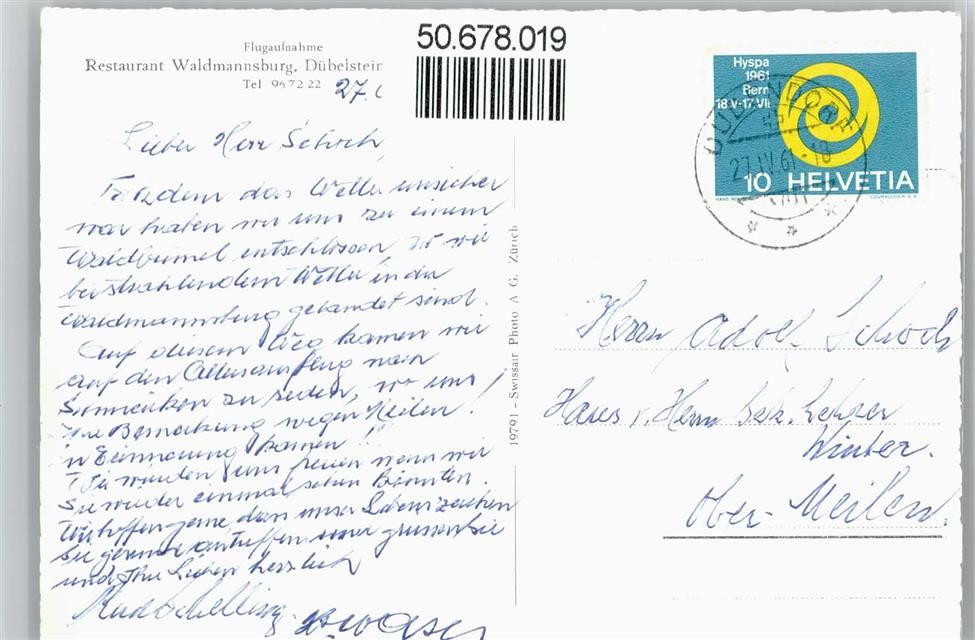 Flugaufnahme
Restaurant Waldmannsburg, Dübelstein
Tel 96 72 22
27.
50.678.019
Lieber Herr Schoch,
Trotzdem das Wetter unsicher
war haben wir uns zu einem
Waldbummel entschlossen wo wir
bei strahlendem Wetter in der
Waldmannsburg gelandet sind.
Auf diesem Weg kamen wir
auf den Altersausflug nach
zu reden, wo uns
Ihre Bemerkung wegen Meilen!
in Erinnerung kamen!!
Wir würden uns freuen wenn wir
Sie wieder einmal sehen könnten.
Wir hoffen gerne dass unser Lebenszeichen
Sie gesund antreffen und grüssen Sie
und Ihre Lieben herzlich
19791 - Swissair Photo A G. Zürich
Hyspa
1961
Bern
18.V-17.VII
10 HELVETIA
DÜBENDORF
27.IV.61-18
Herrn Adolf Schoch
Haus v. Herrn Sek. Lehrer
Winter.
Ober-Meilen.